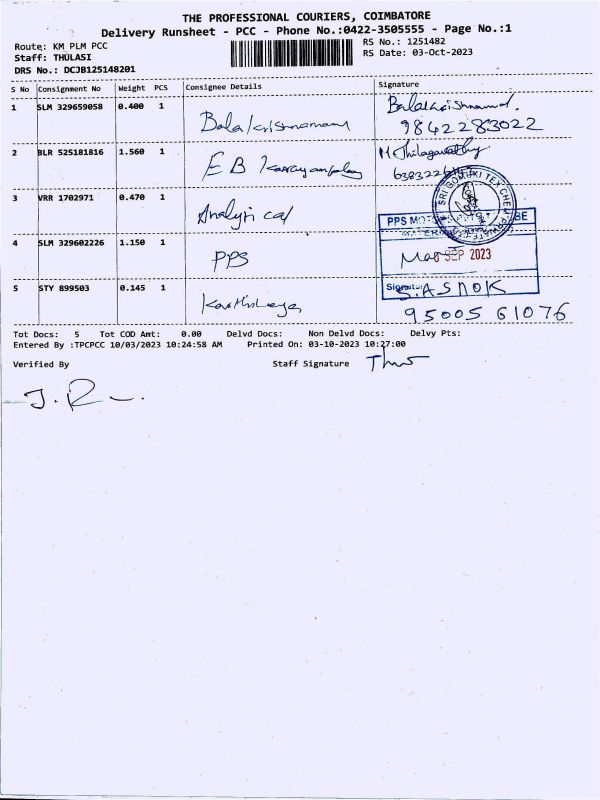 THE PROFESSIONAL COURIERS, COIMBATORE
Delivery Runsheet - PCC - Phone No.:0422-3505555 - Page No.:1
Route: KM PLM PCC
RS No.: 1251482
Staff: THULASI
RS Date: 03-Oct-2023
DRS No.: DCJB125148201
S No Consignment No Weight PCS Consignee Details Signature
1 SLM 329659058 0.400 1 Balakrishnamani
9842283022
2 BLR 525181816 1.560 1 EB
3 VRR 1702971 0.470 1 Analytical
SRI GOMUKI TEX CHEM PRIVATE
PPS MOT
4 SLM 329602226 1.150 1 PPS
SEP 2023
5 STY 899503 0.145 1
Signature
S.ASHOK
95005 61076
Tot Docs: 5 Tot COD Amt: 0.00 Delvd Docs: Non Delvd Docs: Delvy Pts:
Entered By :TPCPCC 10/03/2023 10:24:58 AM Printed On: 03-10-2023 10:27:00
Verified By Staff Signature
J. R